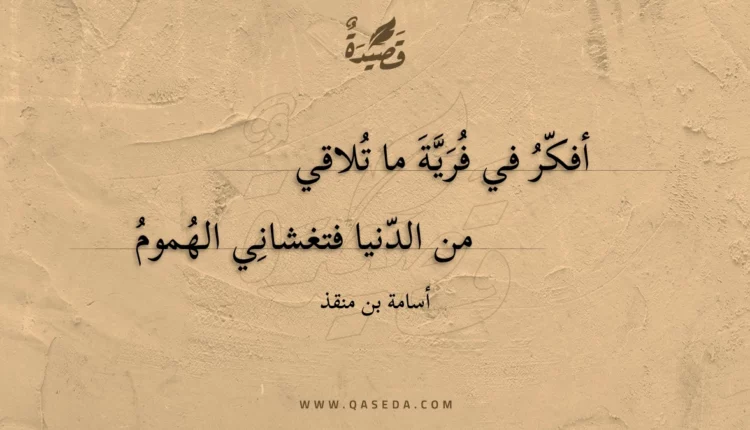 قَصِيْدَةٌ
أفكّرُ في فُرَيَّةَ ما تُلاقي
من الدّنيا فتغشانِي الهُمومُ
أسامة بن منقذ
WWW.QASEDA.COM